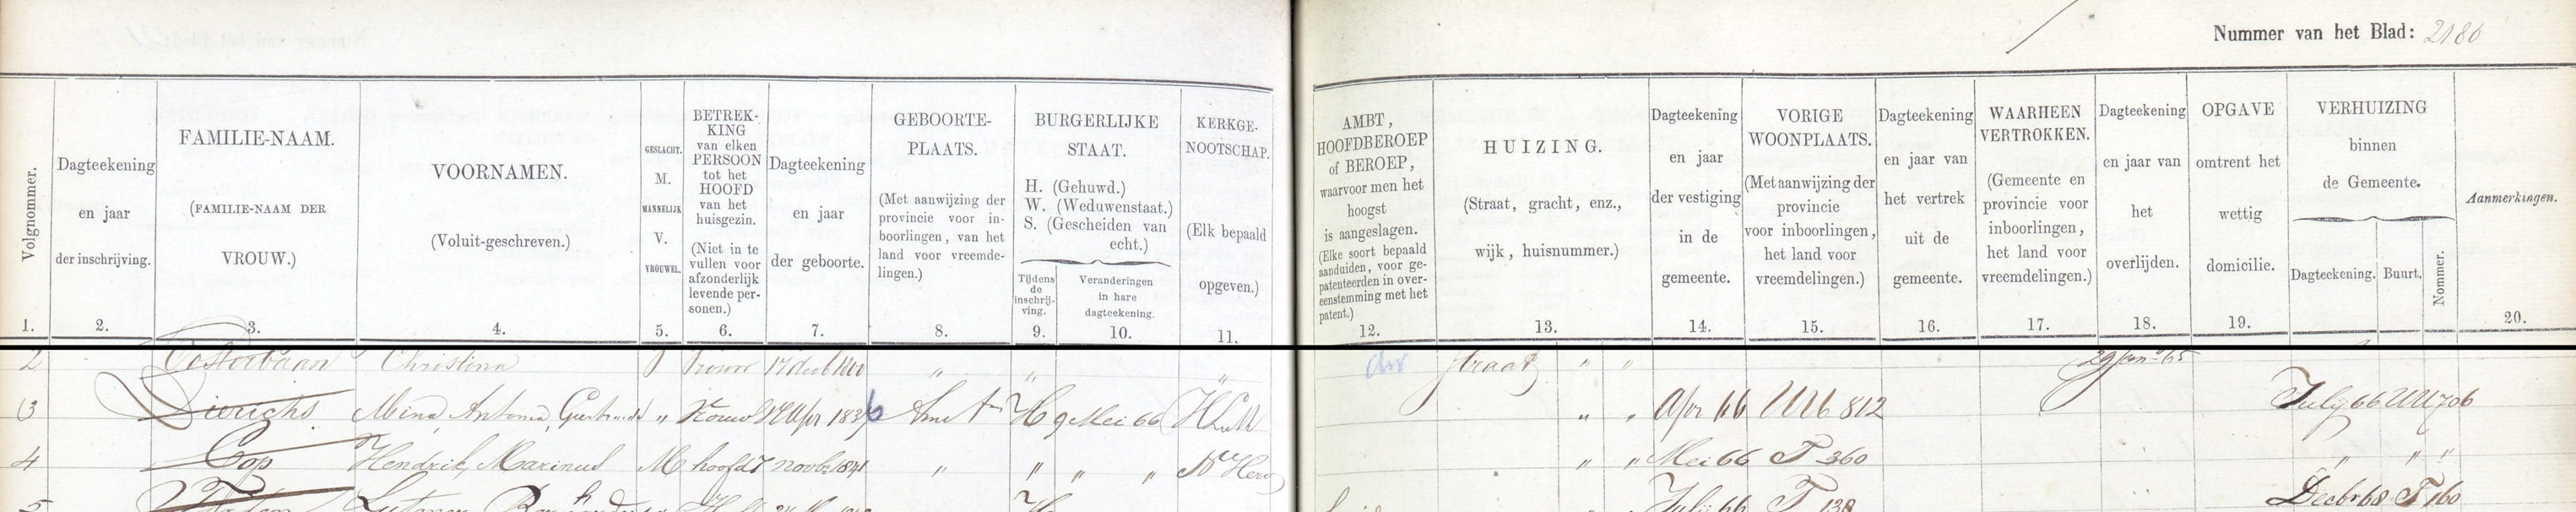 Nummer van het Blad: 2180
Volgnommer.
1.
Dagteekening
en jaar
der inschrijving.
2.
FAMILIE-NAAM.
(FAMILIE-NAAM DER
VROUW.)
3.
VOORNAMEN.
(Voluit-geschreven.)
4.
GESLACHT.
M.
MANNELIJK
V.
VROUWEL.
5.
BETREK-
KING
van elken
PERSOON
tot het
HOOFD
van het
huisgezin.
(Niet in te
vullen voor
afzonderlijk
levende per-
sonen.)
6.
Dagteekening
en jaar
der geboorte.
7.
GEBOORTE-
PLAATS.
(Met aanwijzing der
provincie voor in-
boorlingen, van het
land voor vreemde-
lingen.)
8.
BURGERLIJKE
STAAT.
H. (Gehuwd.)
W. (Weduwenstaat.)
S. (Gescheiden van
echt.)
Tijdens
de
inschrij-
ving.
9.
Veranderingen
in hare
dagteekening.
10.
KERKGE-
NOOTSCHAP.
(Elk bepaald
opgeven.)
11.
AMBT,
HOOFDBEROEP
of BEROEP,
waarvoor men het
hoogst
is aangeslagen.
(Elke soort bepaald
aanduiden, voor ge-
patenteerden in over-
eenstemming met het
patent.)
12.
HUIZING.
(Straat, gracht, enz.,
wijk, huisnummer.)
13.
Dagteekening
en jaar
der vestiging
in de
gemeente.
14.
VORIGE
WOONPLAATS.
(Met aanwijzing der
provincie
voor inboorlingen,
het land voor
vreemdelingen.)
15.
Dagteekening
en jaar van
het vertrek
uit de
gemeente.
16.
WAARHEEN
VERTROKKEN.
(Gemeente en
provincie voor
inboorlingen,
het land voor
vreemdelingen.)
17.
Dagteekening
en jaar van
het
overlijden.
18.
OPGAVE
omtrent het
wettig
domicilie.
19.
VERHUIZING
binnen
de Gemeente.
Dagteekening.
Buurt.
Nommer.
Aanmerkingen.
20.
2 Oosterbaan Christina Vrouw " " " straat " "
3 Dierichs Mina, Antonia, " Vrouw 19 Apr Amst H 9 Mei 66 " " Apr 66 812 July 66 UU 706
4 Cop Hendrik, Marinus M hoofd 7 novbr 1841 " " " " N Herv " " Mei 66 T 360 " " "
5 July 66 T 138 Decbr 68 T 160